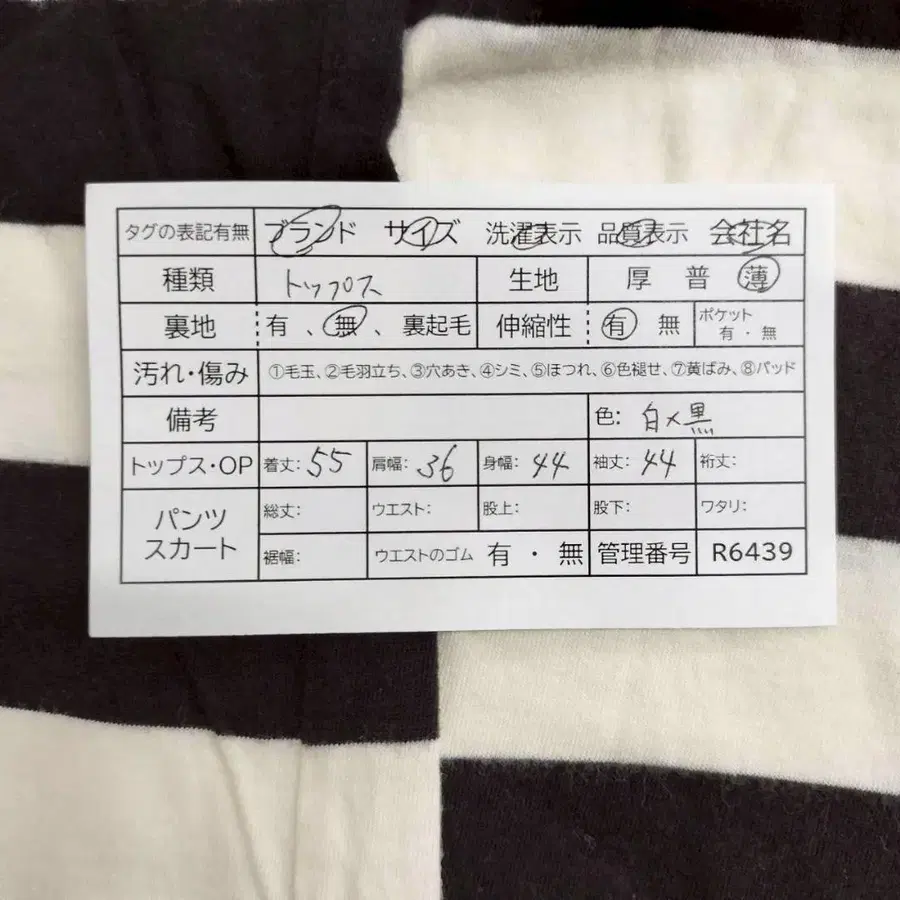 タグの表記有無 ブランド サイズ 洗濯表示 品質表示 会社名
種類 トップス 生地 厚 普 薄
裏地 有 、無 、裏起毛 伸縮性 有 無 ポケット 有・無
汚れ・傷み ①毛玉、②毛羽立ち、③穴あき、④シミ、⑤ほつれ、⑥色褪せ、⑦黄ばみ、⑧パッド
備考 色: 白×黒
トップス・OP 着丈: 55 肩幅: 36 身幅: 44 袖丈: 44 裄丈:
パンツ スカート 総丈: ウエスト: 股上: 股下: ワタリ:
裾幅: ウエストのゴム 有 ・ 無 管理番号 R6439